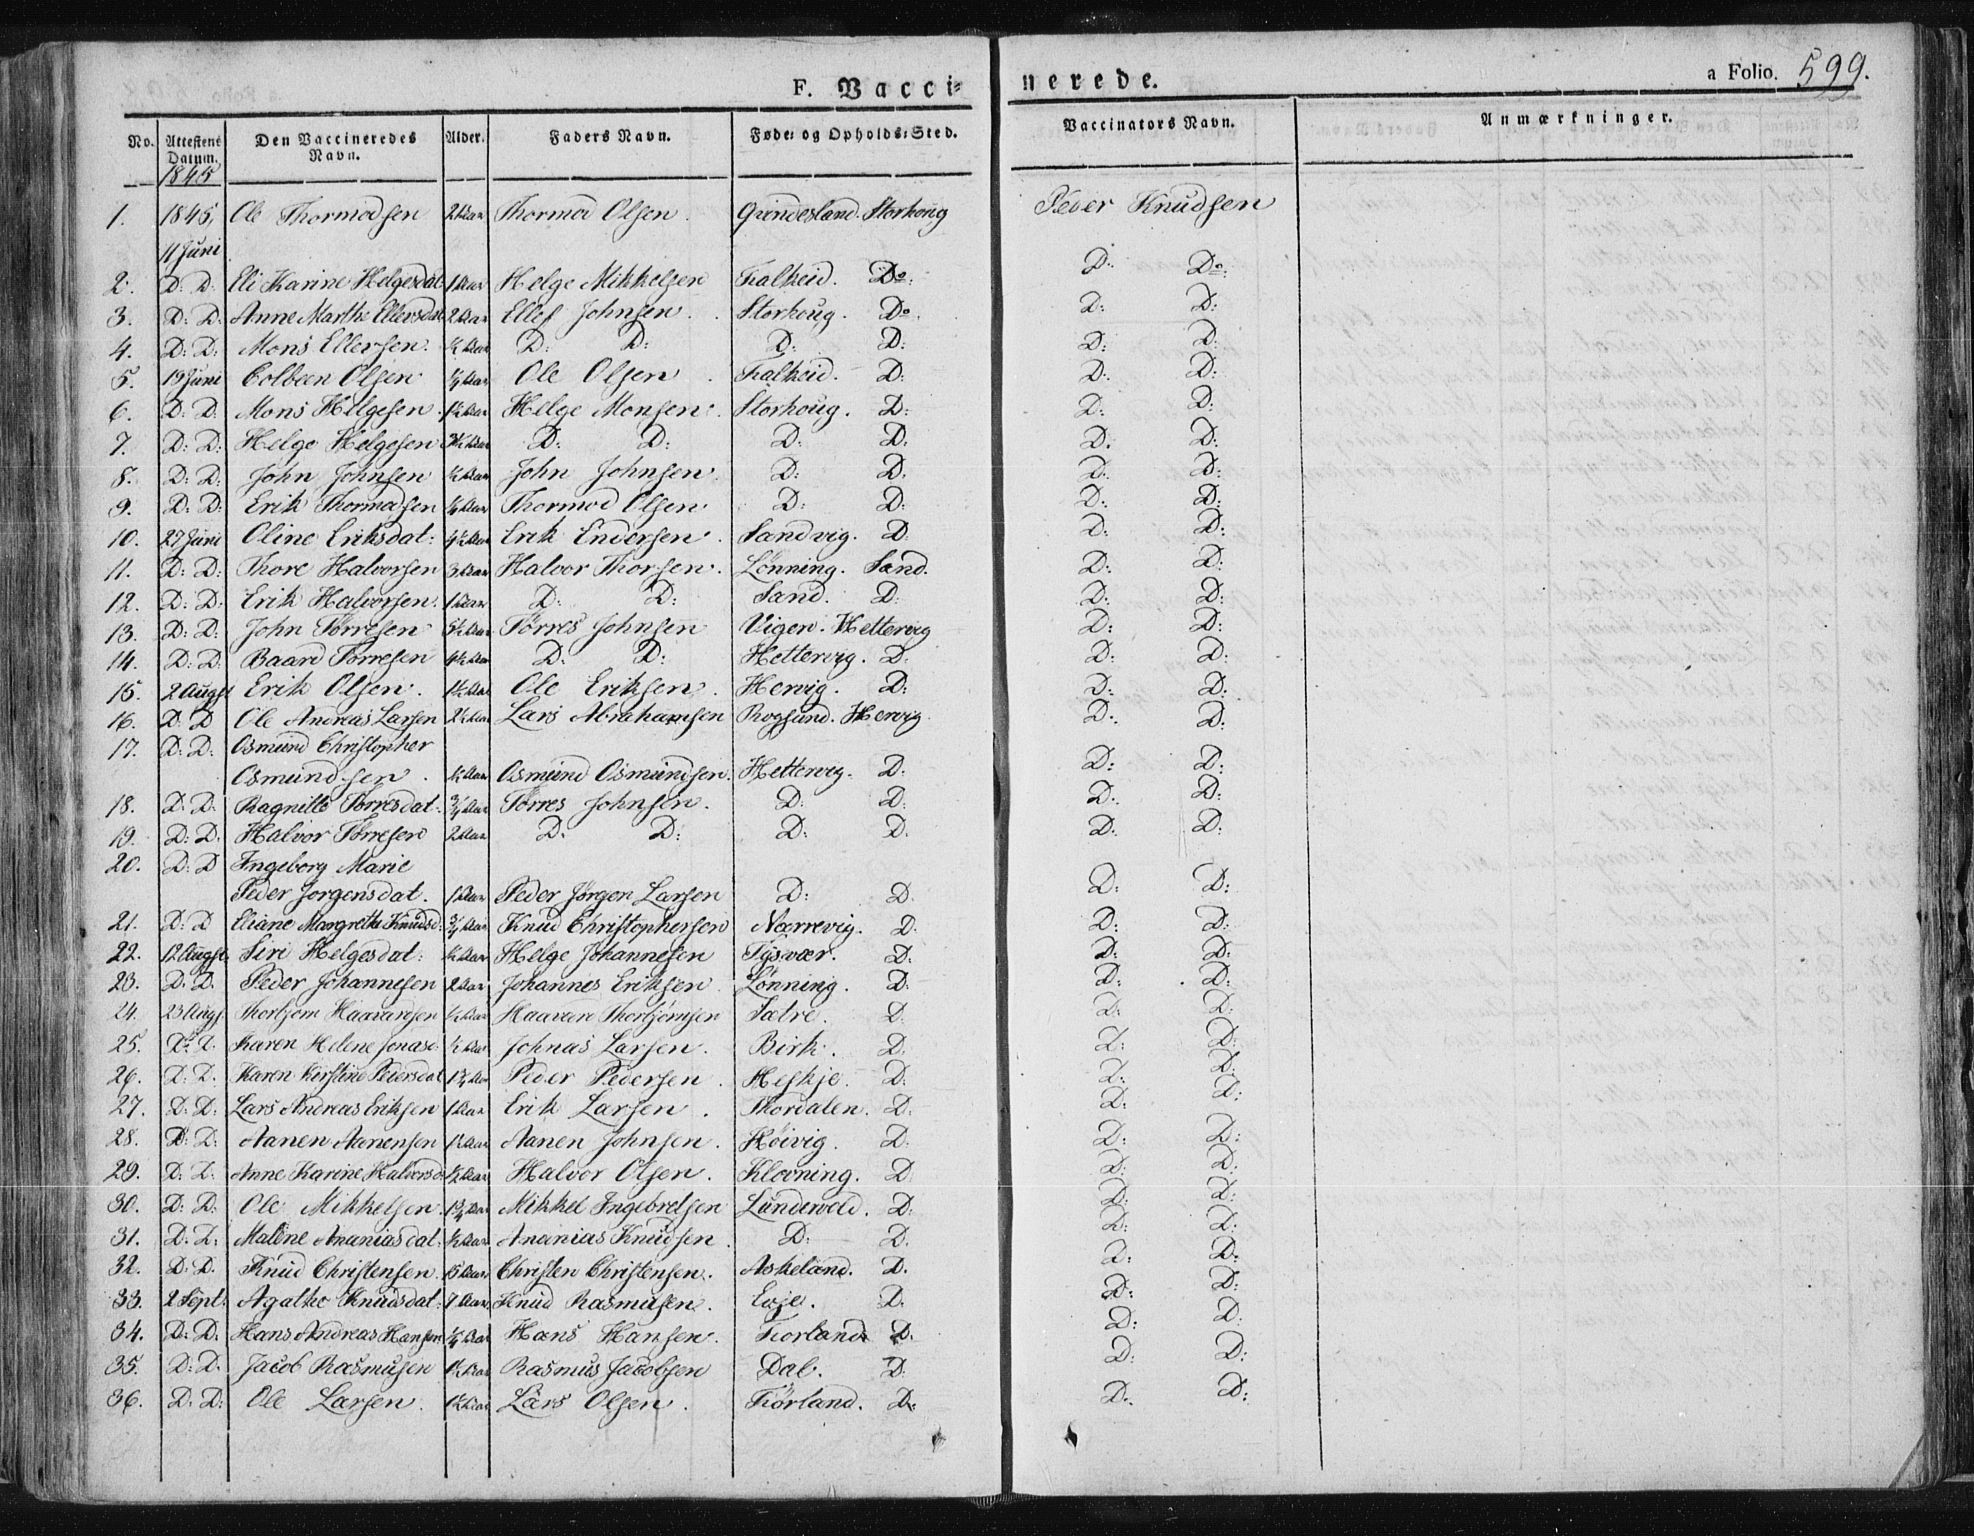 F. Vacci- nerede. a Folio. 599.
No. Attestens Datum. Den Vaccineredes Navn. Alder. Faders Navn. Føde- og Opholds-Sted. Vaccinators Navn. Anmærkninger.
1845
1. 1845, Ole Thormodsen Thormod Olsen. Grindesland. Storhoug Peder Knudsen
11 Juni
2. D: D: Eli Karine Helgesdat: 1 Aar Helge Mikkelsen Falkeid. Do: D: Do:
3. D: D: Anne Marthe Ellevsdat 2 Aar Ellef Johnsen. Storhoug. Do. D: D:
4. D: D: Mons Ellefsen. ½ Aar D: D: D: D: D: D:
5. 19 Juni Colbeen Olsen Ole Olsen. Falkeid. D: D: D:
6. D: D: Mons Helgesen. 1½ Aar Helge Monsen. Storhoug. D: D: D:
7. D: D: Helge Helgesen 3½ Aar D: D: D: D: D: D:
8. D: D: John Johnsen ½ Aar John Johnsen. D: D: D: D:
9. D: D: Erik Thormodsen Thormod Olsen. D: D: D: D:
10. 27 Juni Oline Eriksdat: Erik Endersen. Sandvig. D. D: D:
11. D: D: Thore Halvorsen 3 Aar Halvor Thorsen. Lønning. Sand. D: D:
12. D: D: Erik Halvorsen. 1 Aar D: D: Sand. D: D: D:
13. D: D: John Tørresen 5½ Aar Tørres Johnsen Vigen. Hettervig D: D:
14. D: D: Baard Tørresen 4½ Aar D: D: Hettervig. D. D: D:
15. 2 Augst Erik Olsen. 1½ Aar Ole Eriksen. Hervig. D: D: D:
16. D: D Ole Andreas Larsen 2½ Aar Lars Abrahamsen Rogsund. Hervig. D: D:
17. D: D: Osmund Christopher
Osmundsen. ½ Aar Osmund Osmundsen. Hettervig. D: D: D:
18. D: D. Ragnille Tørresdat: ¾ Aar Tørres Johnsen. D: D: D: D:
19. D: D. Halvor Tørresen 2 Aar D: D: D: D. D: D:
20. D: D Ingeborg Marie
Peder Jørgensdat. 1 Aar Peder Jørgen Larsen D: D. D: D:
21. D: D Eliane Margrethe Knudsd: ¾ Aar Knud Christophersen Nærrevig. D. D: D:
22. 12 Augst Siri Helgesdat: ½ Aar Helge Johannesen Tysvær. D: D: D:
23. D: D. Peder Johannesen 2 Aar Johannes Eriksen. Lønning. D: D: D:
24. 23 Augs Thorbjørn Haavardsen ½ Aar Haavard Thorbjørnsen Sætre. D. D: D.
25. D: D. Karen Helene Jonasd: ½ Aar Johnas Larsen. Birk. D. D: D:
26. D: D. Karen Kirstine Pedersdat 1¾ Aar Peder Pedersen. Heskje. D: D: D:
27. D: D: Lars Andreas Eriksen 1 Aar Erik Larsen. Thordalen. D: D: D:
28. D: D: Aanen Aanensen 1½ Aar Aanen Johnsen. Høivig. D: D: D:
29. D: D: Anne Karine Halvorsd: ½ Aar Halvor Olsen. Klovning. D D: D:
30. D: D: Ole Mikkelsen 1¾ Aar Mikkel Ingebretsen Lundeveld. D: D: D:
31. D: D: Malene Ananiasdat: ½ Aar Ananias Knudsen. D: D. D: D:
32. D: D. Knud Christensen. Christen Christensen. Askeland. D. D: D:
33. 2 Sept: Agathe Knudsdat: 7 Aar Knud Rasmusen. Evje. D. D: D:
34. D: D: Hans Andreas Hansen Hans Hansen. Førland D. D: D.
35. D: D. Jacob Rasmusen 1½ Aar Rasmus Jacobsen Dal. D. D: D:
36. D: D: Ole Larsen. 1½ Aar Lars Olsen. Førland. D. D: D: